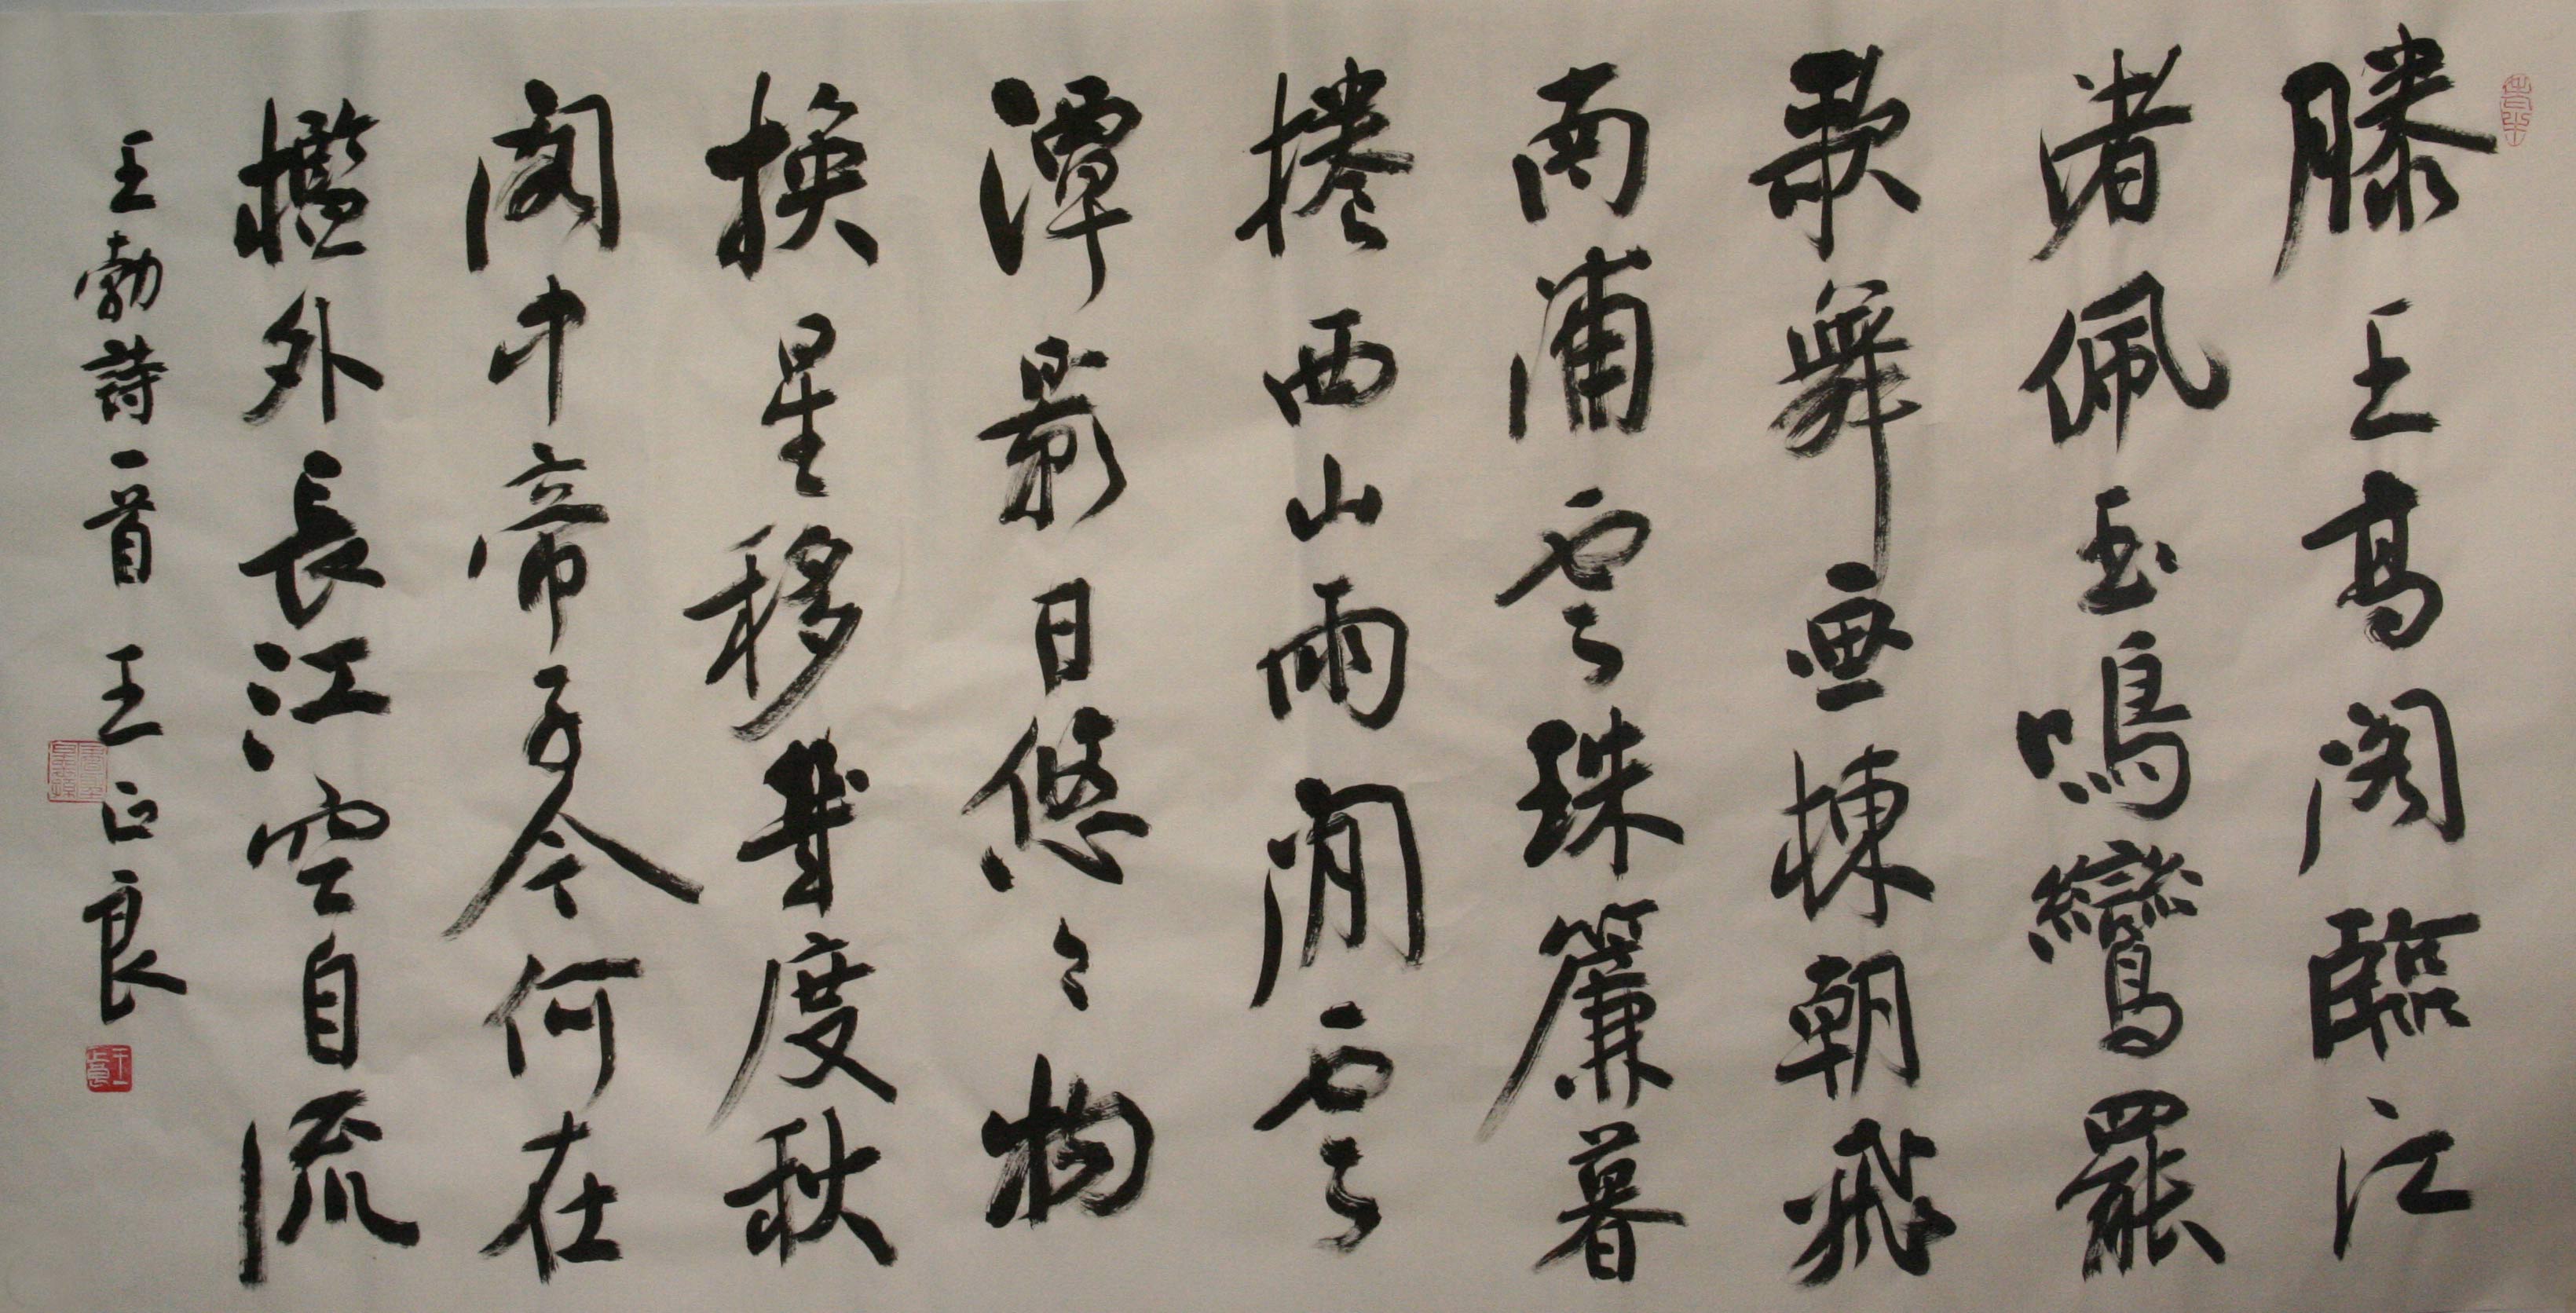 滕王高閣臨江
渚佩玉鳴鸞罷
歌舞画棟朝飛
南浦雲珠簾暮
捲西山雨閒雲
潭影日悠々物
換星移幾度秋
閣中帝子今何在
檻外長江空自流
王勃詩一首 王正良